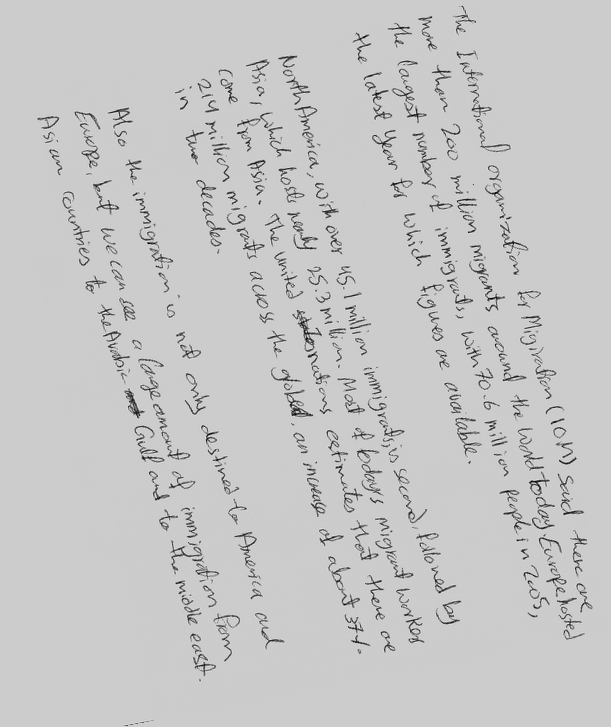 The International organization for Migiration (IOM) said there are
more than 200 million migrants around the world today Europe hosted
the largest number of immigrants, with 70.6 million people in 2005,
the latest year for which figures are available.
North America, with over 45.1 million immigrats, is second, followed by
Asia, which hosts nearly 25.3 million. Most of todays migrant worker
come from Asia. The united nations estimates that there are
214 million migrants across the globe, an increase of about 37%
in two decades.
Also the immigration is not only destined to America and
Europe, but we can see a large amount of immigration from
Asian countries to the Arabic Gulf and to the middle east.